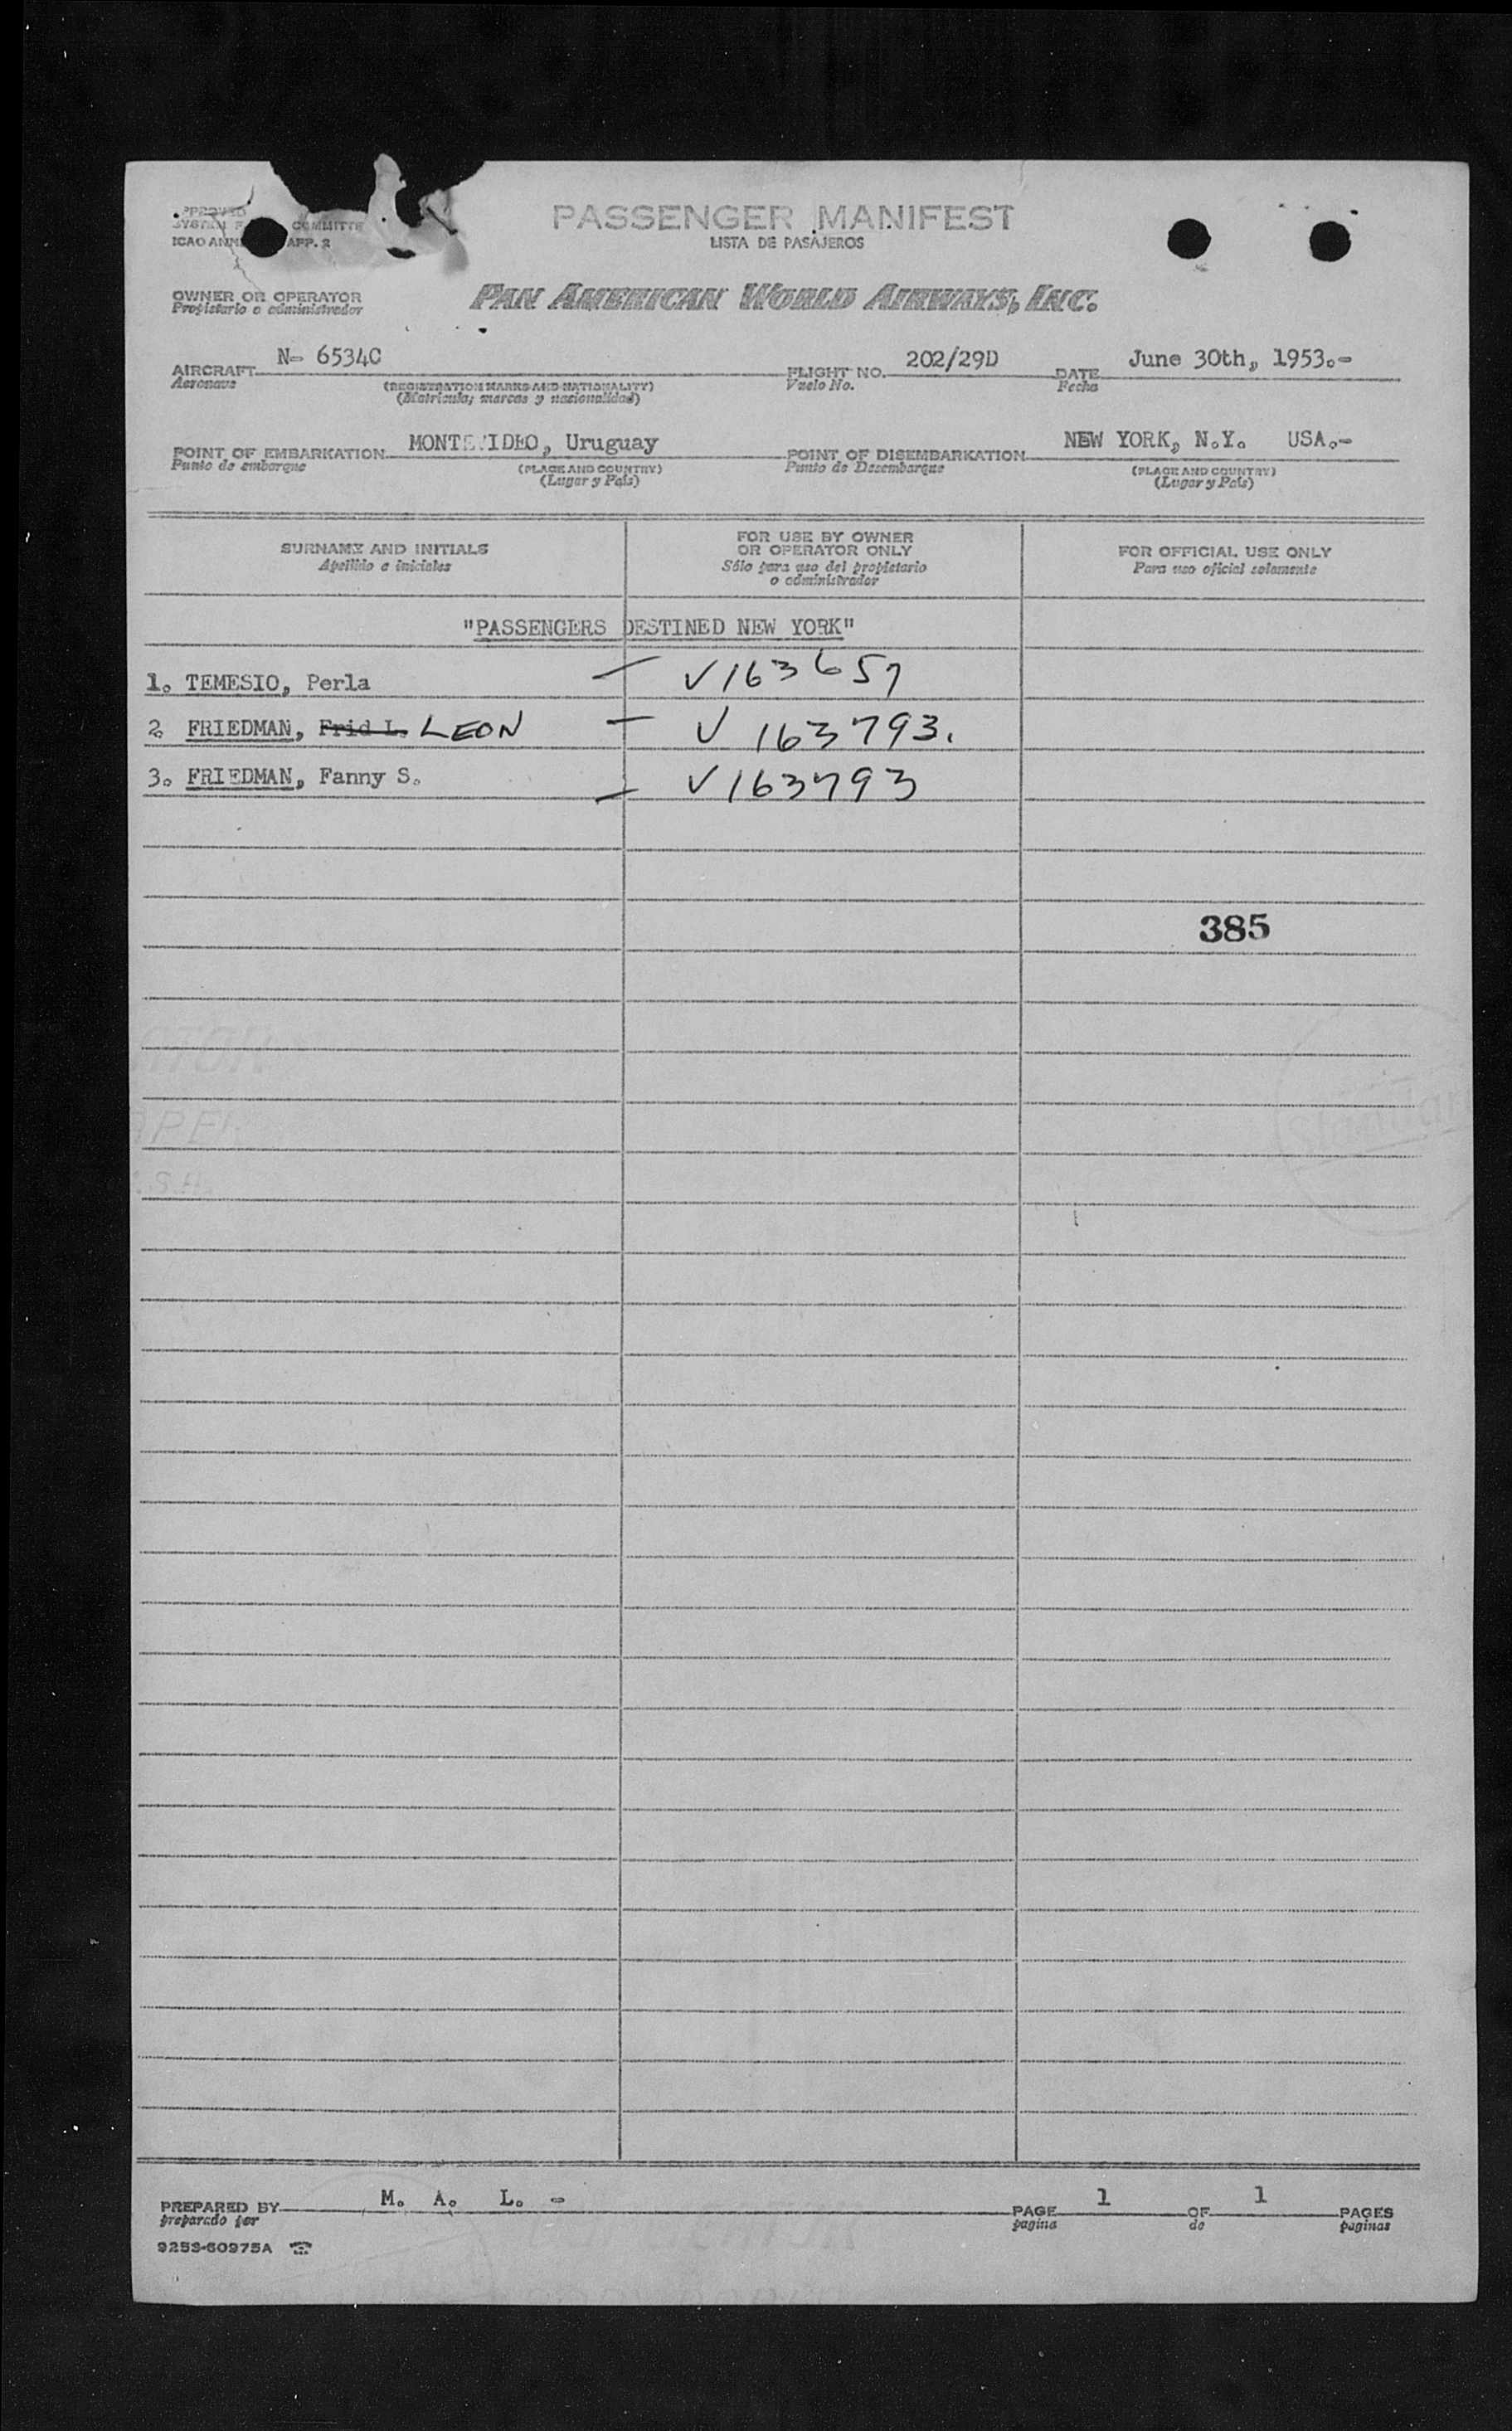 PASSENGER MANIFEST
LISTA DE PASAJEROS
ICAO APP. 2
OWNER OR OPERATOR
Propietario o administrador
PAN AMERICAN WORLD AIRWAYS, INC.
AIRCRAFT N- 6534C FLIGHT NO. 202/29D DATE June 30th, 1953.-
Aeronave (REGISTRATION MARKS AND NATIONALITY) Vuelo No. Fecha
(Matricula; marcas y nacionalidad)
POINT OF EMBARKATION MONTEVIDEO, Uruguay POINT OF DISEMBARKATION NEW YORK, N.Y. USA.-
Punto de embarque (PLACE AND COUNTRY) Punto de Desembarque (PLACE AND COUNTRY)
(Lugar y País) (Lugar y País)
SURNAME AND INITIALS
Apellido e iniciales
FOR USE BY OWNER
OR OPERATOR ONLY
Sólo para uso del propietario
o administrador
FOR OFFICIAL USE ONLY
Para uso oficial solamente
"PASSENGERS DESTINED NEW YORK"
1. TEMESIO, Perla — V163657
2. FRIEDMAN, Frid L. LEON — V 163793.
3. FRIEDMAN, Fanny S. — V163793
385
PREPARED BY M. A. L. - PAGE 1 OF 1 PAGES
preparado por pagina de paginas
9253-60975A